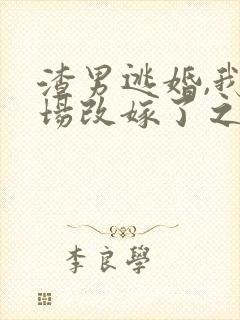 渣男逃婚,我
场改嫁了之
李良學